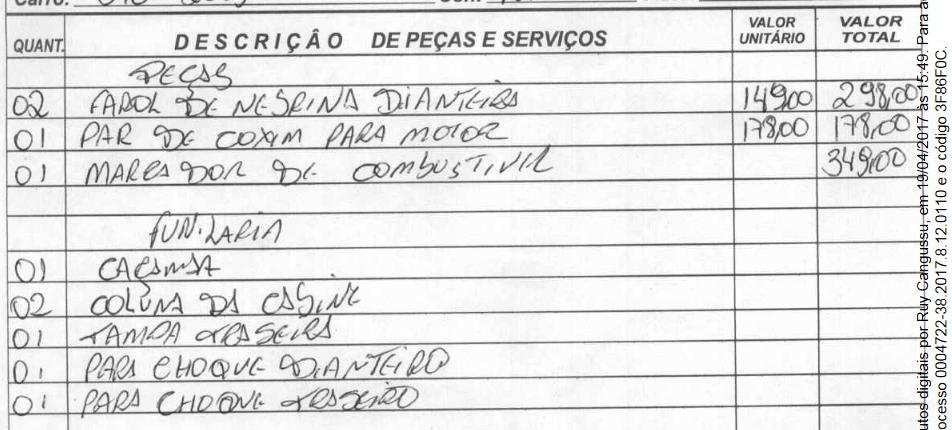 Carro:
QUANT. DESCRIÇÃO DE PEÇAS E SERVIÇOS VALOR UNITÁRIO VALOR TOTAL
PEÇAS
02 FAROL DE NEBRINA DIANTEIRA 149,00 298,00
01 PAR DE COXIM PARA MOTOR 178,00 178,00
01 MARCADOR DE COMBUSTIVIL 349,00
FUNILARIA
01
02 COLUNA DA CABINE
01 TAMPA TRASEIRA
01 PARA CHOQUE DIANTEIRO
01 PARA CHOQUE TRASEIRO
utos digitais por Ruy Cangussu, em 19/04/2017 às 15:49. Para a
ocesso 0004722-38.2017.8.12.0110 e o código 3F86F0C.